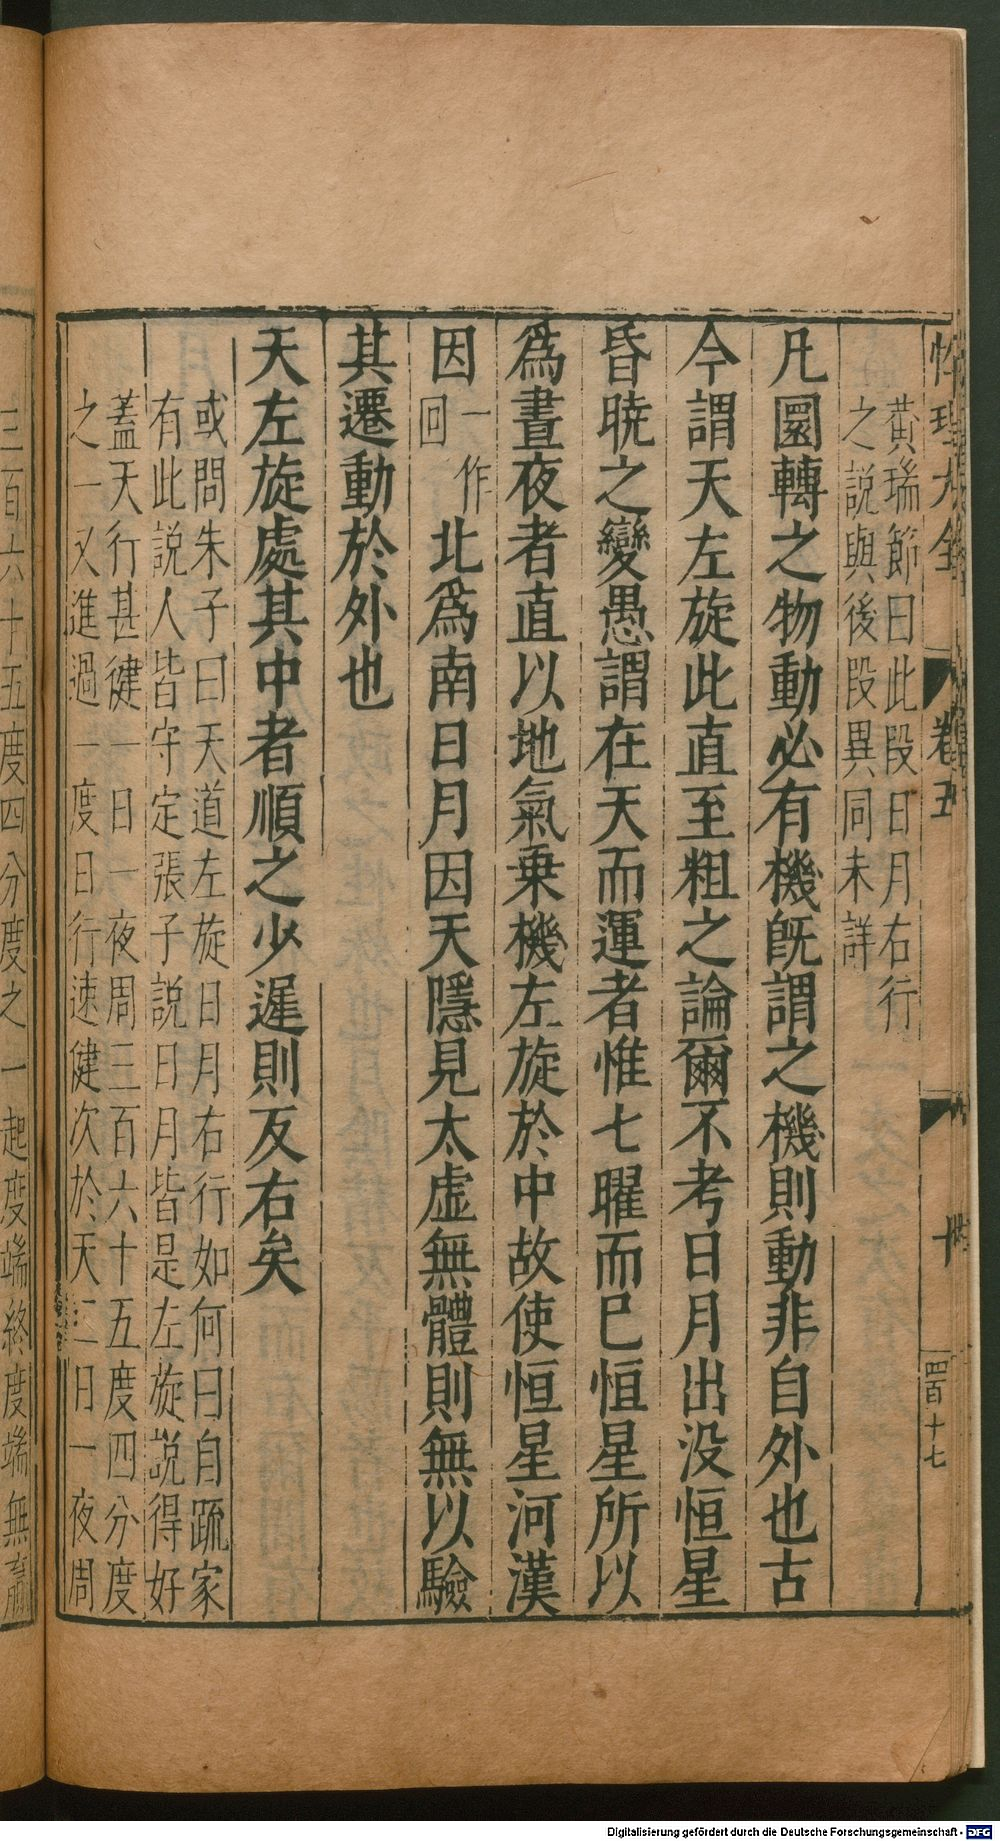 性理大全
卷五
十
四百十七
黃瑞節曰此段日月右行
之說與後段異同未詳
凡圜轉之物動必有機旣謂之機則動非自外也古
今謂天左旋此直至粗之論爾不考日月出没恒星
昏曉之變愚謂在天而運者惟七曜而巳恒星所以
爲晝夜者直以地氣乗機左旋於中故使恒星河漢
因一作回北爲南日月因天隱見太虛無體則無以驗
其遷動於外也
天左旋處其中者順之少遲則反右矣
或問朱子曰天道左旋日月右行如何曰自䟽家
有此説人皆守定張子説日月皆是左旋説得好
蓋天行甚健一日一夜周三百六十五度四分度
之一又進過一度日行速健次於天一日一夜周
三百六十五度四分度之一起度端終度端無
Digitalisierung gefördert durch die Deutsche Forschungsgemeinschaft - DFG